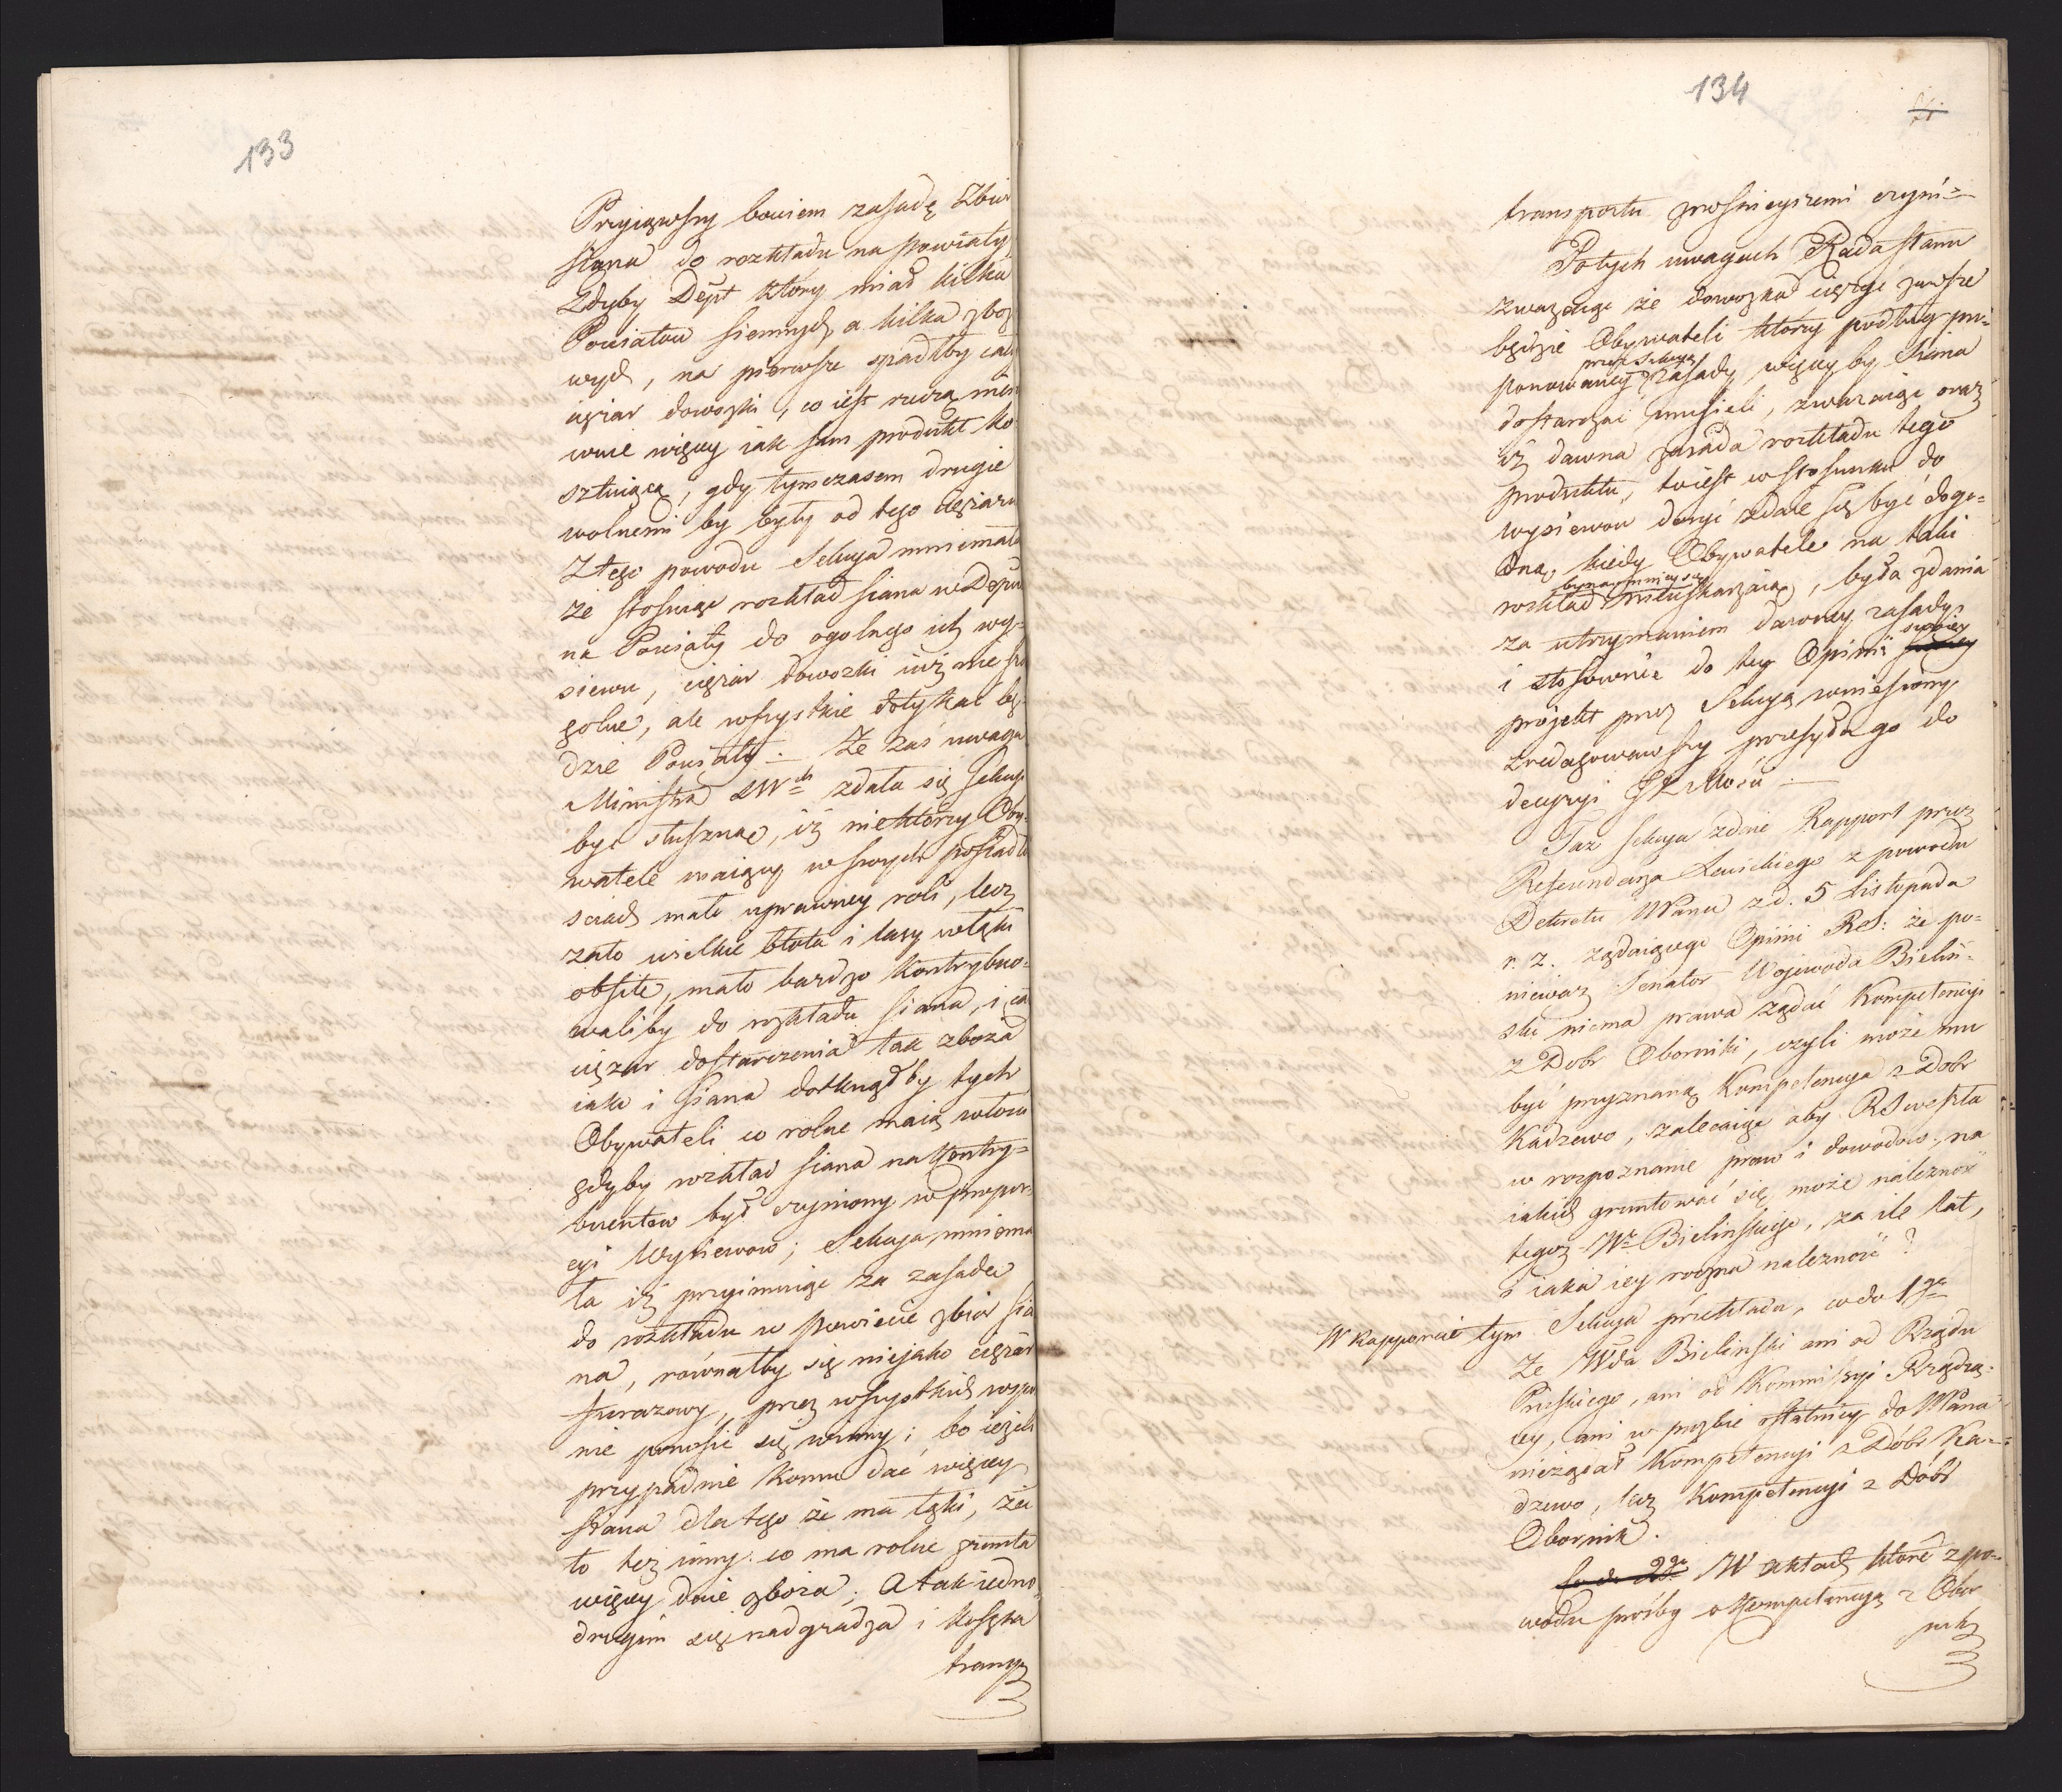 133
Przyiąwszy bowiem zasadę Zbiór
siana do rozkładu na powiaty
Gdyby Dept który miał kilka
Powiatow siennych a kilka zboż
wych, na pierwsze spadłby cały
ciężar dowozki, co iest rzeczą mni
więcey iak sam produkt ko
sztuiącą, gdy tymczasem drugie
wolnemi by były od tego ciężaru
Z tego powodu Sekcya mniemała
że stosuiąc rozkład siana w Depu
na Powiaty do ogolnego ich wy=
siewu, ciężar dowozki iuż nie szcze
golne, ale wszystkie dotykać bę=
dzie Powiaty. — Że zaś uwaga
Ministra SWch zdała się Sekcyi
być słuszną, iż niektórzy Oby=
watele maiący w swych posiadło
sciach mało uprawney roli, lecz
zato wielkie błota i lasy w łąki
obfite, mało bardzo kontrybuo=
waliby do rozkładu siana, i cał
ciężar dostarczenia tak zboża
iako i siana dotknąłby tych
Obywateli co rolne maią włości
gdyby rozkład siana na kontry=
buentow był czyniony w propor=
cyi Wysiewow; Sekcya mniema
ła iż przyimuiąc za zasadę
do rozkładu w powiecie zbiór sia
na, równałby się niejako ciężar
furażowy, przez wszystkich wspol
nie ponosić się winny; bo ieżeli
przypadnie komu dać więcey
siana dla tego że ma łąki, za
to też inny co ma rolne grunta
więcey daie zboża; A tak iedno
drugim się nadgradza i koszta
transp
134
transportu znośnieyszemi czyni=
Po tych uwagach Rada Stanu
zważaiąc że dowozka ciężyć zawsze
będzie Obywateli którzy podług pro=
przez Sekcyą
ponowaney zasady więcey by siana
dostarczać musieli, zważaiąc oraz
iż dawna zasada rozkładu tego
produktu, to iest w stosunku do
wysiewow dosyć zdaie się być dogo=
dną, kiedy Obywatele na taki
bynaymniey się
rozkład nieuskarżaią, była zdania
za utrzymaniem dawney zasady
i stosownie do tey Opinii swoiey
projekt przez Sekcyą wniesiony
zredagowawszy przesyła go do
decyzyi JKMości —
Taż Sekcya zdaie Rapport przez
Referendarza Lewickiego z powodu
Dekretu WPana z d. 5 Listopada
r. z. żądaiącego Opinii RS: że po=
nieważ Senator Wojewoda Bieliń=
ski niema prawa żądać Kompetencyi
z Dobr Oborniki, czyli może mu
być przyznaną Kompetencya z Dobr
Kadzewo, zalecaiąc aby RS weszła
w rozpoznanie praw i dowodow, na
iakich gruntować się może należność
tegoż Wdy Bielińskiego, za ile lat,
i iaka iey roczna należność?
W Rapporcie tym Sekcya przekłada, co do 1go
Że Wda Bielinski ani od Rządu
Pruskiego, ani od Kommissyi Rządzą=
cey, ani w prozbie ostatniey do WPana
nieżądał Kompetencyi z Dobr Ka=
dzewo, lecz Kompetencyi z Dobr
Obornik.
Co do 2go W aktach które z po=
wodu prośby o Kompetencyą z Obor
nik